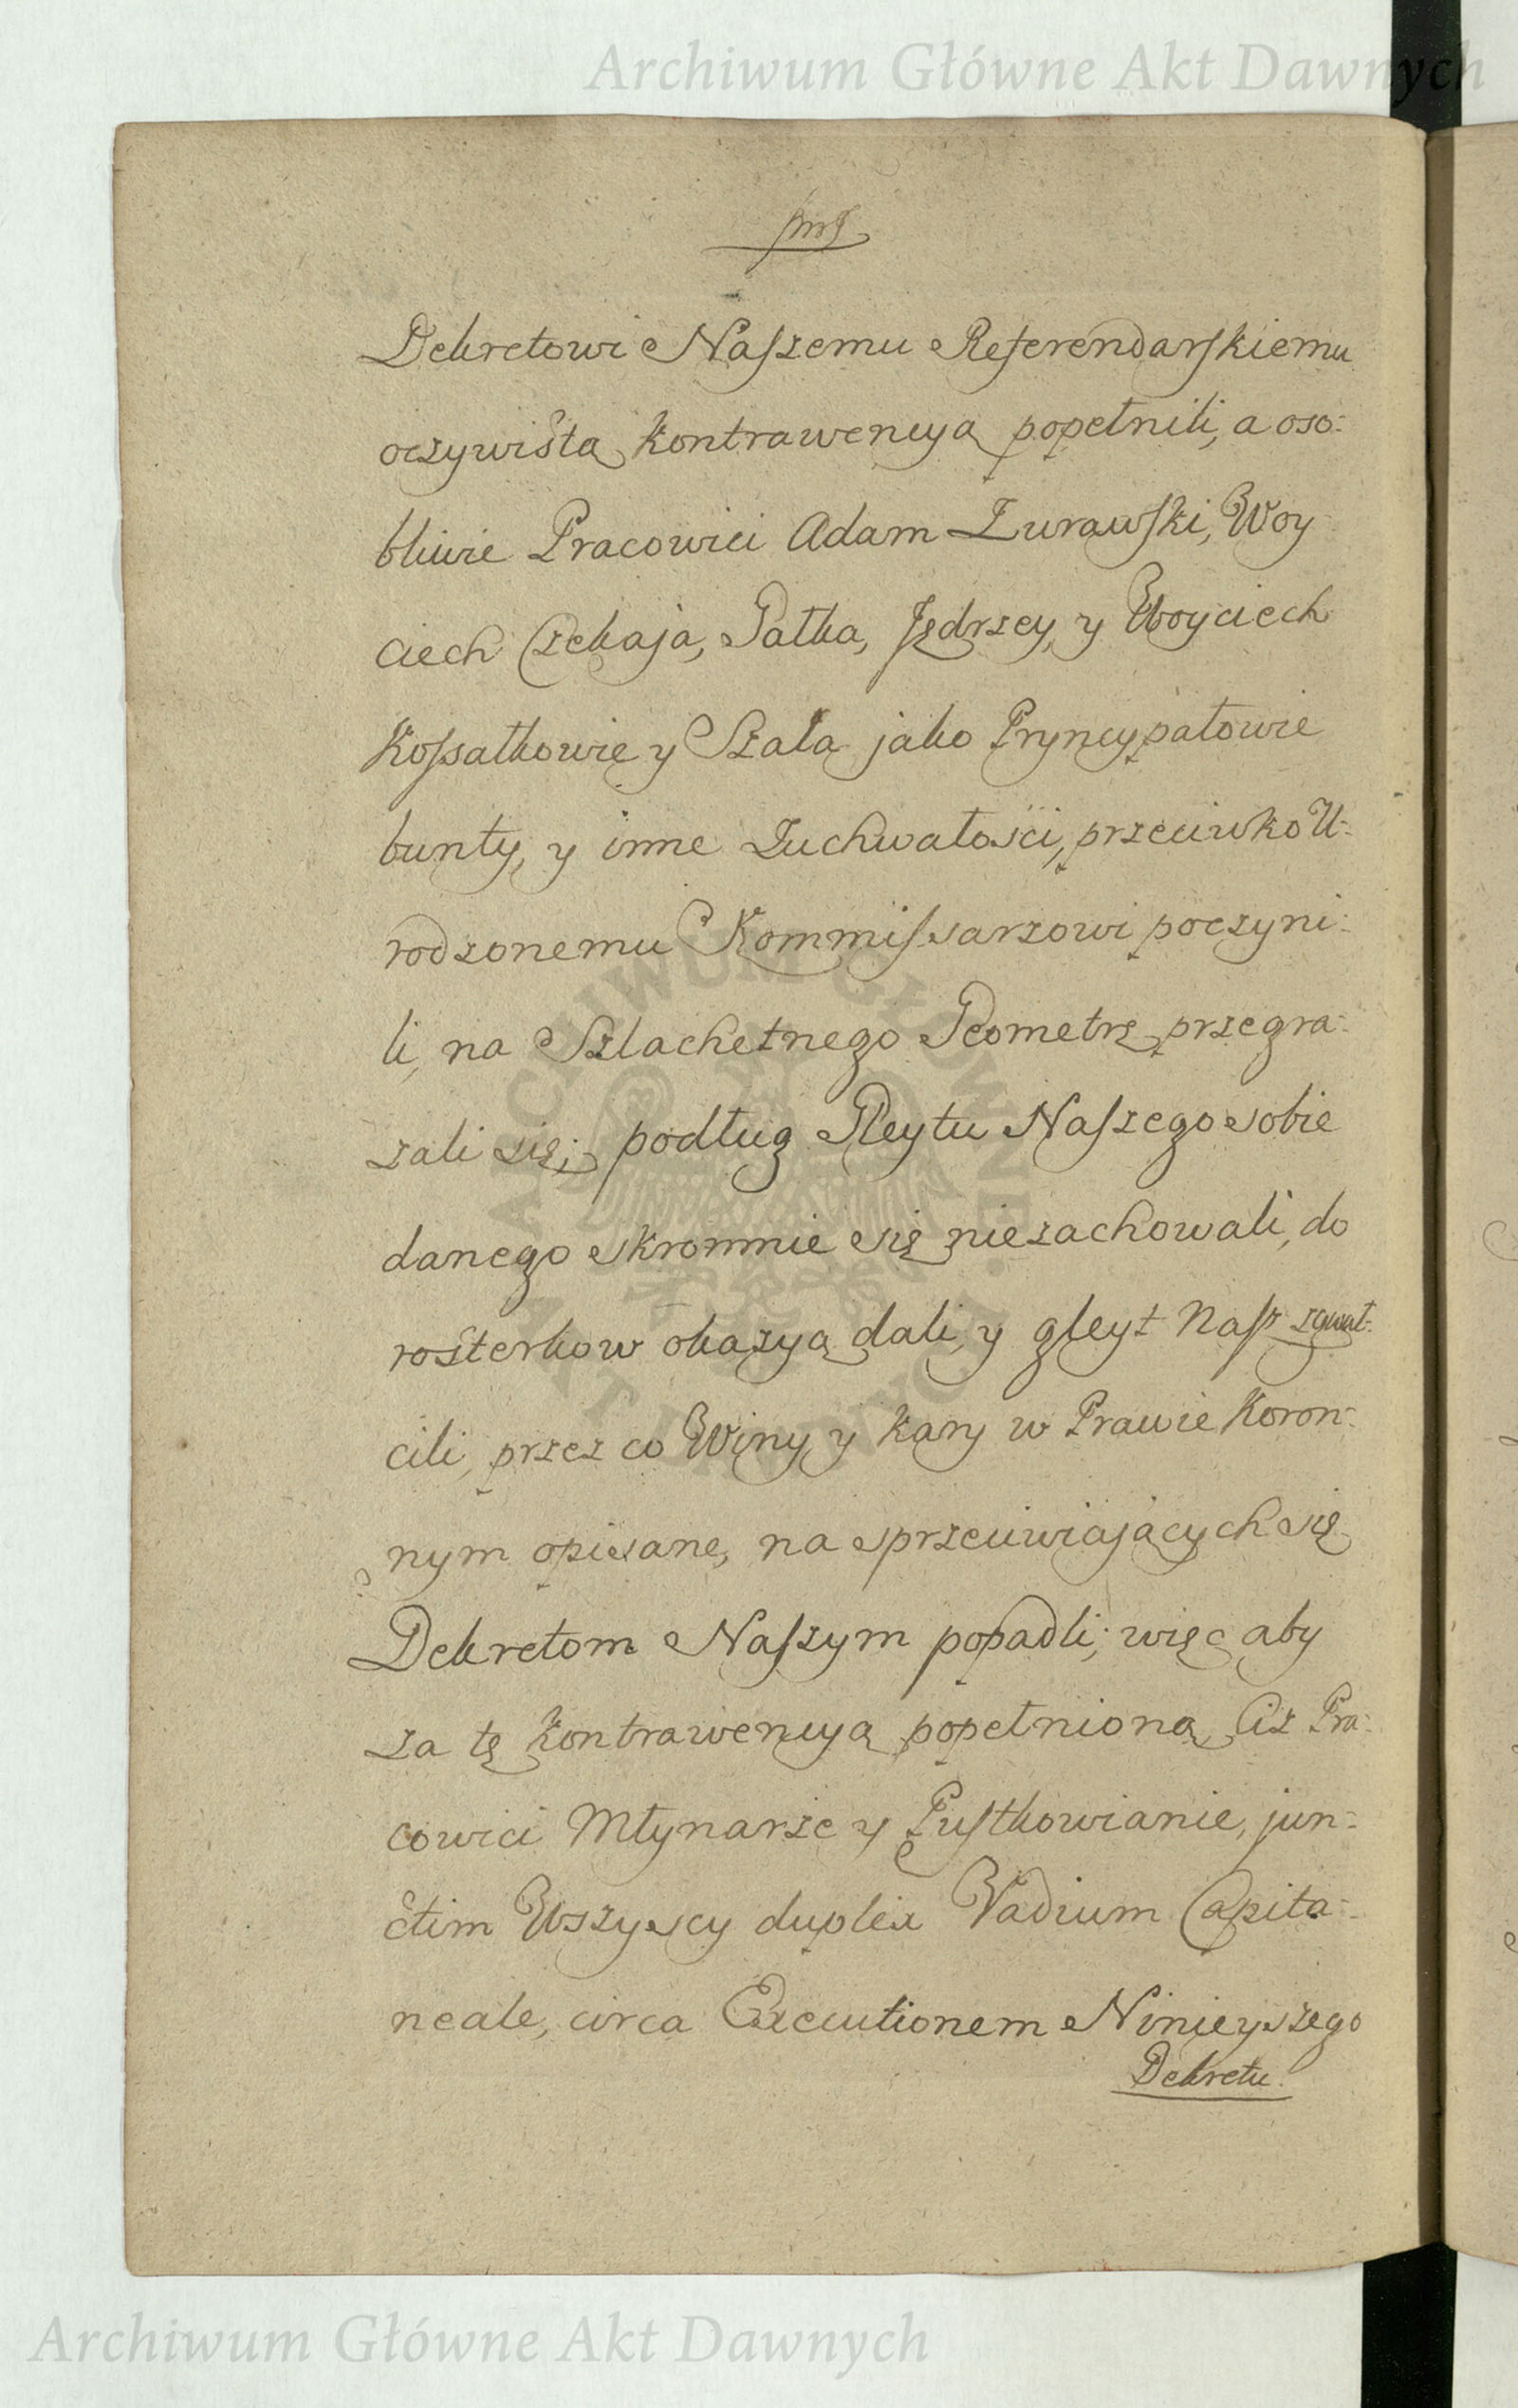 Archiwum Główne Akt Dawnych
Dekretowi Naszemu Referendarskiemu
oczywistą kontrawencyą popełnili, a oso-
bliwie Pracowici Adam Zurawski, Woy
ciech Czekaja, Patka, Jędrzey, y Woyciech
Kossatkowie y Szała jako Pryncypałowie
bunty, y inne Zuchwałości, przeciwko U-
rodzonemu Kommissarzowi poczyni-
li, na Szlachetnego Geometrę przegra-
zali się; podług Gleytu Naszego sobie
danego skromnie się niezachowali, do
rosterkow okazyą dali, y gleyt Nasz zgwał-
cili, przez co Winy y kary w Prawie Koron-
nym opisane, na sprzeciwiaiących się
Dekretom Naszym popadli; więc aby
za tę kontrawencyą popełnioną Ciż Pra-
cowici Młynarze y Pustkowianie, jun-
ctim Wszyscy duplex Vadium Capita-
neale, circa Executionem Ninieyszego
Dekretu.
ARCHIWUM GŁÓWNE AKT DAWNYCH
Archiwum Główne Akt Dawnych